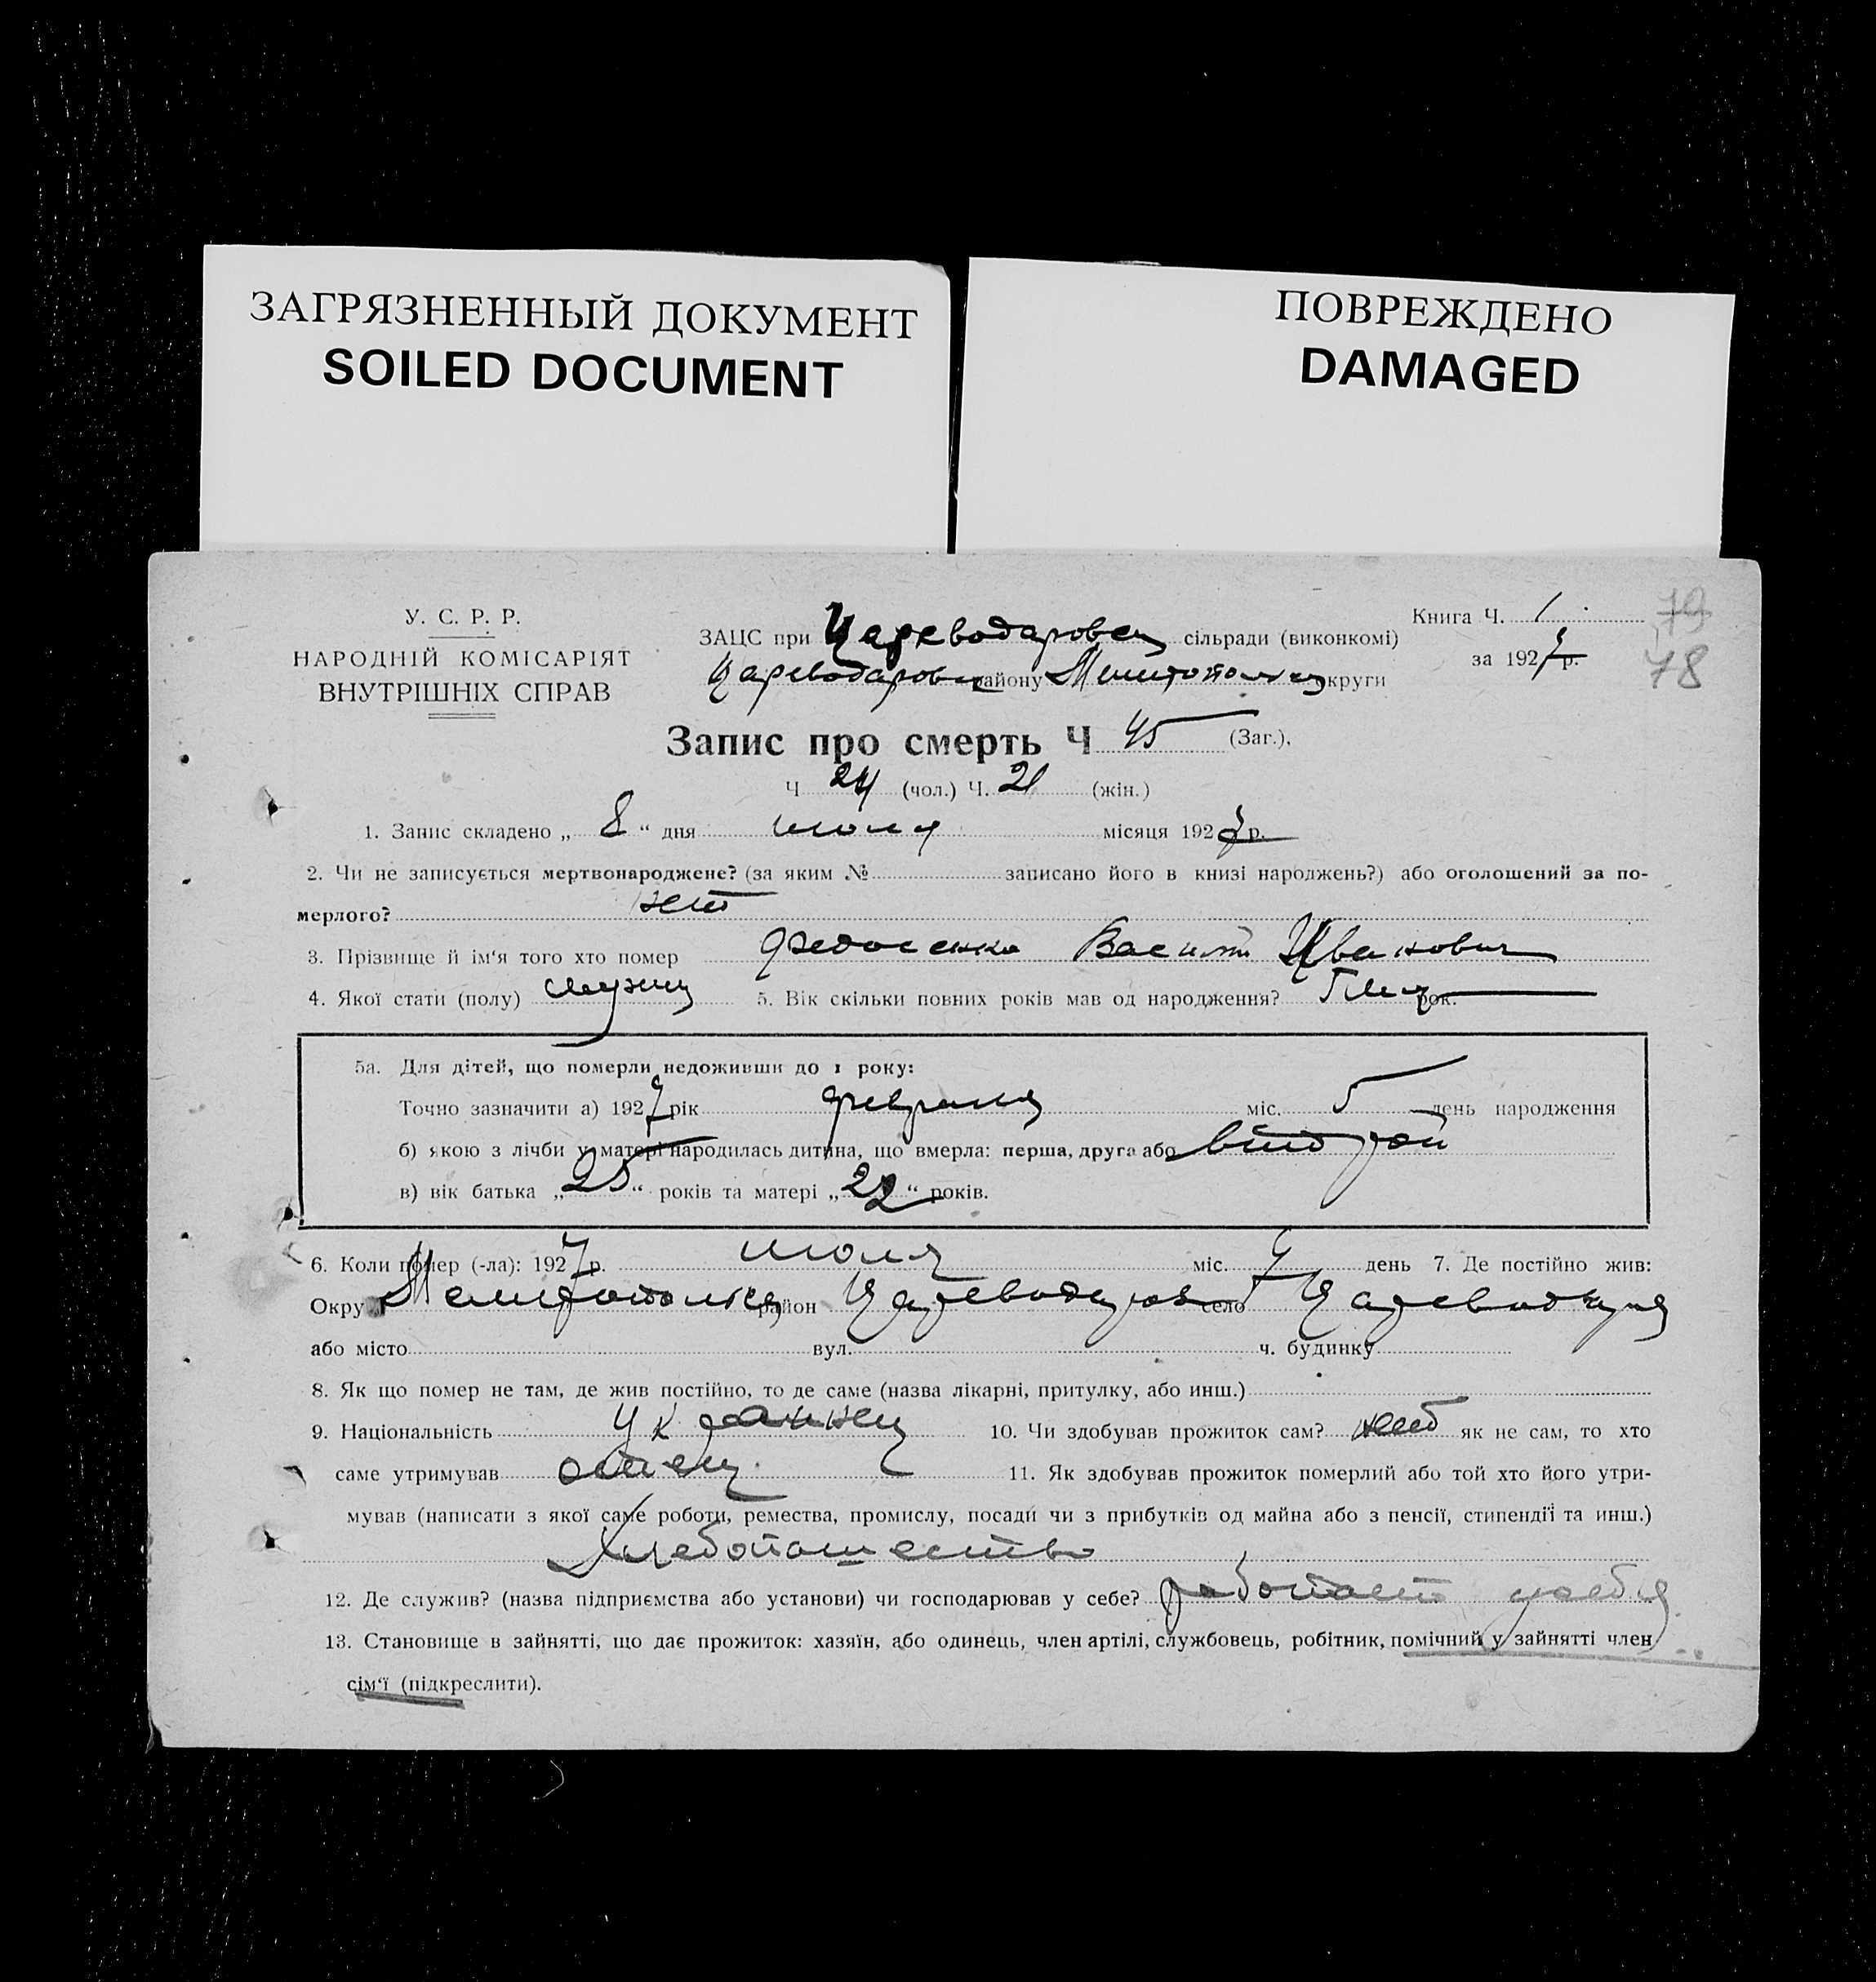 ЗАГРЯЗНЕННЫЙ ДОКУМЕНТ
SOILED DOCUMENT
ПОВРЕЖДЕНО
DAMAGED
У. С. Р. Р.
НАРОДНІЙ КОМІСАРІЯТ
ВНУТРІШНІХ СПРАВ
ЗАЦС при Цареводаровск сільради (виконкомі)
Цареводаровск району Мелитопольск округи
Книга Ч. 1
за 1927 р.
79
78
Запис про смерть Ч 45 (Заг.),
Ч 24 (чол.) Ч. 21 (жін.)
1. Запис складено „ 8 “ дня июля місяця 1927 р.
2. Чи не записується мертвонароджене? (за яким № записано його в книзі народжень?) або оголошений за по-
мерлого? нет
3. Прізвище й ім‘я того хто помер Федосенко Василий Иванович
4. Якої стати (полу) мужск 5. Вік скільки повних років мав од народження? 5 мец рок.
5а. Для дітей, що померли недоживши до 1 року:
Точно зазначити а) 1927 рік февраля міс. 5 день народження
б) якою з лічби у матері народилась дитина, що вмерла: перша, друга або второй
в) вік батька „ 25 “ років та матері „ 22 “ років.
6. Коли помер (-ла): 1927 р. июля міс. 7 день 7. Де постійно жив:
Окру Мелитопольск район Цареводаровск село Цареводаровка
або місто вул. ч. будинку
8. Як що помер не там, де жив постійно, то де саме (назва лікарні, притулку, або инш.)
9. Національність Украинец 10. Чи здобував прожиток сам? нет як не сам, то хто
саме утримував отец 11. Як здобував прожиток померлий або той хто його утри-
мував (написати з якої саме роботи, ремества, промислу, посади чи з прибутків од майна або з пенсії, стипендії та инш.)
Хлебопашество
12. Де служив? (назва підприємства або установи) чи господарював у себе? работает у себя
13. Становище в зайнятті, що дає прожиток: хазяїн, або одинець, член артілі, службовець, робітник, помічний у зайнятті член
сім‘ї (підкреслити).